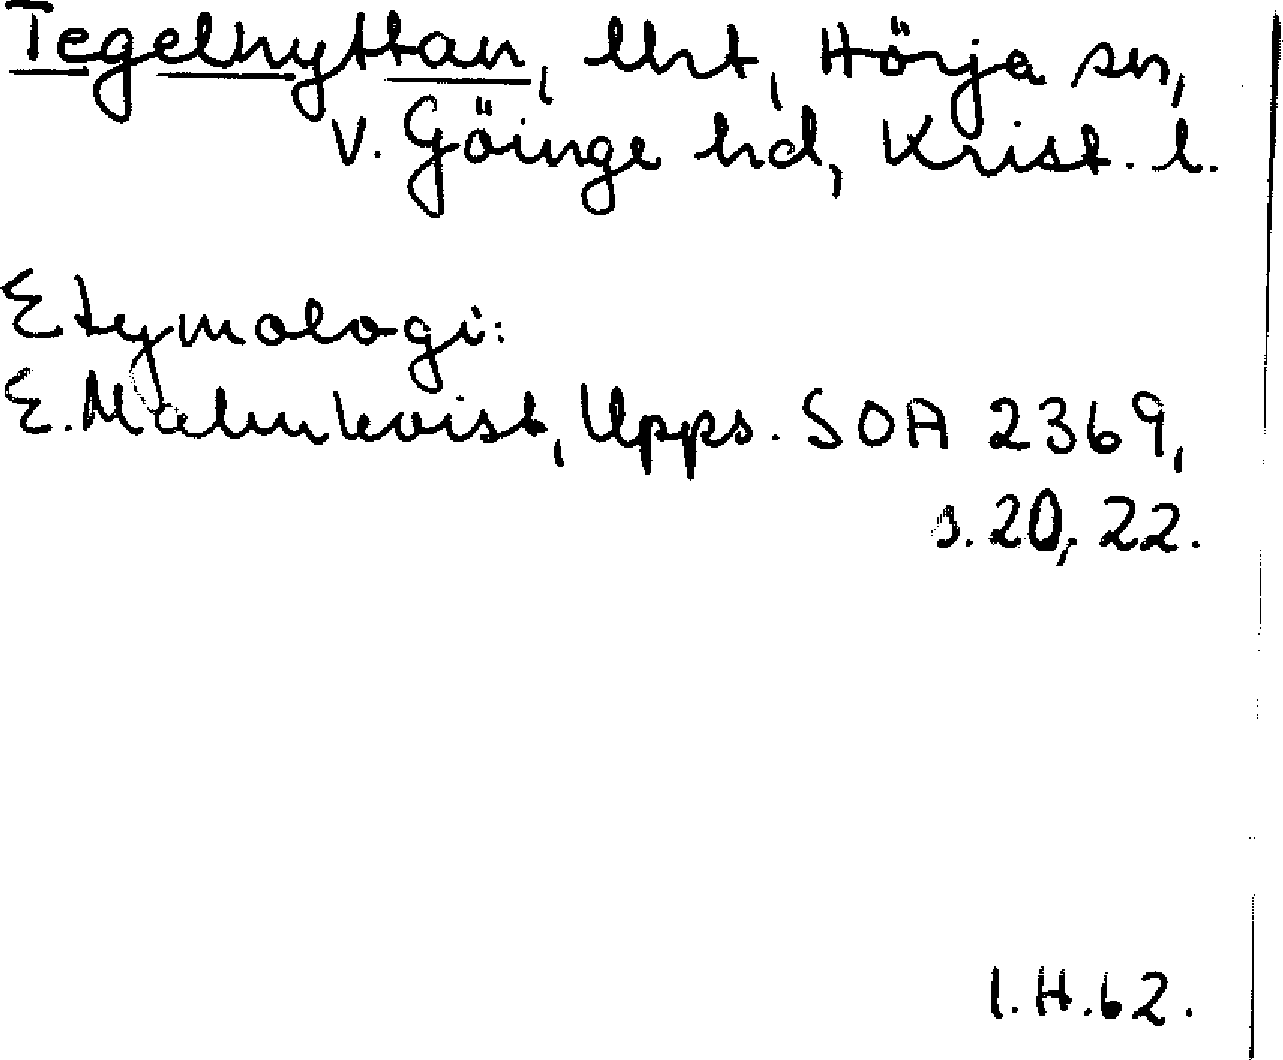 Tegelhyttan, lht, Hörja sn,
V. Göinge hd, Krist. l.
Etymologi:
E. Malmkvist, Upps. SOA 2369,
s. 20, 22.
I.H.62.